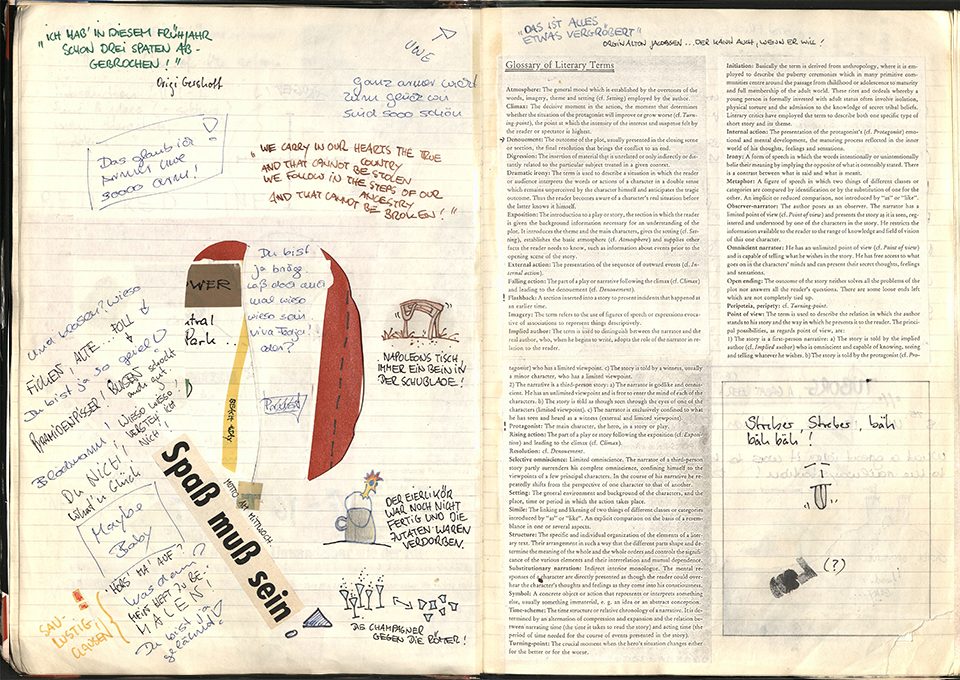 "ICH HAB' IN DIESEM FRÜHJAHR
SCHON DREI SPATEN AB-
GEBROCHEN!"
Origi Gershoff
UWE
sind sooo schön
Das glaub ich
30000 Cura!
"WE CARRY IN OUR HEARTS THE TRUE
AND THAT CANNOT BE COUNTRY
BE STOLEN
WE FOLLOW IN THE STEPS OF OUR
ANCESTRY
AND THAT CANNOT
BE BROKEN!"
Du bist
mal wieso
wieso sein
oder?
WER
tral
Park...
NAPOLEONS TISCH
IMMER EIN BEIN IN
DER SCHUBLADE!
Und wieso? Wieso
FICKEN, ALTE
TOLL
Du bist ja so
geil
PYRAMIDENPISSER!
BUSEN
WIESO WIESO?
VERSTEH ICH
NICH!
Blödmann!
DU NICH!
Maybe
Baby
Spaß muß sein
MOTTO
AM
MITTWOCH
DER EIERLIKÖR
WAR NOCH NICHT
FERTIG UND DIE
ZUTATEN WAREN
VERDORBEN.
HÖRST MA' AUF?
Was denn?
MEIN HEFT ZU BE-
MALEN!
Du bist ja
gelähmt!
SAU-
LUSTIG
CLAUSEN!
DIE CHAMPAGNER
GEGEN DIE RÖMER!
"DAS IST ALLES
ETWAS VERGRÖBERT"
ORIGINALTON JACOBSEN... DER KANN AUCH, WENN ER WILL!
Glossary of Literary Terms
Atmosphere: The general mood which is established by the overtones of the
words, imagery, theme and setting (cf. Setting) employed by the author.
Climax: The decisive moment in the action, the moment that determines
whether the situation of the protagonist will improve or grow worse (cf. Turn-
ing-point), the point at which the intensity of the interest and suspense felt by
the reader or spectator is highest.
Denouement: The outcome of the plot, usually presented in the closing scene
or section, the final resolution that brings the conflict to an end.
Digression: The insertion of material that is unrelated or only indirectly or dis-
tantly related to the particular subject treated in a given context.
Dramatic irony: The term is used to describe a situation in which the reader
or audience interprets the words or actions of a character in a double sense
which remains unperceived by the character himself and anticipates the tragic
outcome. Thus the reader becomes aware of a character's real situation before
the latter knows it himself.
Exposition: The introduction to a play or story, the section in which the reader
is given the background information necessary for an understanding of the
plot. It introduces the theme and the main characters, gives the setting (cf. Set-
ting), establishes the basic atmosphere (cf. Atmosphere) and supplies other
facts the reader needs to know, such as information about events prior to the
opening scene of the story.
External action: The presentation of the sequence of outward events (cf. In-
ternal action).
Falling action: The part of a play or narrative following the climax (cf. Climax)
and leading to the denouement (cf. Denouement).
Flashback: A section inserted into a story to present incidents that happened at
an earlier time.
Imagery: The term refers to the use of figures of speech or expressions evoca-
tive of associations to represent things descriptively.
Implied author: The term is used to distinguish between the narrator and the
real author, who, when he begins to write, adopts the role of the narrator in re-
lation to the reader.
tagonist) who has limited viewpoint. c) The story is told by a witness, usually
a minor character, who has a limited viewpoint.
2) The narrative is a third-person story: a) The narrator is godlike and omnis-
cient. He has an unlimited viewpoint and is free to enter the mind of each of the
characters. b) The story is told as though seen through the eyes of one of the
characters (limited viewpoint). c) The narrator is exclusively confined to what
he has seen and heard as a witness (external and limited viewpoint).
Protagonist: The main character, the hero, in a story or play.
Rising action: The part of a play or story following the exposition (cf. Exposi-
tion) and leading to the climax (cf. Climax).
Resolution: cf. Denouement.
Selective omniscience: Limited omniscience. The narrator of a third-person
story partly surrenders his complete omniscience, confining himself to the
viewpoints of a few principal characters. In the course of his narrative he re-
peatedly shifts from the perspective of one character to that of another.
Setting: The general environment and background of the characters, and the
place, time or period in which the action takes place.
Simile: The likening and linking of two things of different classes or categories
introduced by "as" or "like". An explicit comparison on the basis of a resemb-
lance in one or several aspects.
Structure: The specific and individual organization of the elements of a liter-
ary text. Their arrangement in such a way that the different parts shape and de-
termine the meaning of the whole and the whole orders and controls the signifi-
cance of the various elements and their interrelation and mutual dependence.
Substitutionary narration: Indirect interior monologue. The mental re-
sponses of a character are directly presented as though the reader could over-
hear the character's thoughts and feelings as they come into his consciousness.
Symbol: A concrete object or action that represents or interprets something
else, usually something immaterial, e. g. an idea or an abstract conception.
Time-scheme: The time structure or relative chronology of a narrative. It is de-
termined by an alternation of compression and expansion and the relation be-
tween narrating time (the time it takes to read the story) and acting time (the
period of time needed for the course of events presented in the story).
Turning-point: The crucial moment when the hero's situation changes either
for the better or for the worse.
Initiation: Basically the term is derived from anthropology, where it is em-
ployed to describe the puberty ceremonies which in many primitive com-
munities centre around the passage from childhood or adolescence to maturity
and full membership of the adult world. These rites and ordeals whereby a
young person is formally invested with adult status often involve isolation,
physical torture and the admission to the knowledge of secret tribal beliefs.
Literary critics have employed the term to describe both one specific type of
short story and its theme.
Internal action: The presentation of the protagonist's (cf. Protagonist) emo-
tional and mental development, the maturing process reflected in the inner
world of his thoughts, feelings and sensations.
Irony: A form of speech in which the words intentionally or unintentionally
belie their meaning by implying the opposite of what is ostensibly stated. There
is a contrast between what is said and what is meant.
Metaphor: A figure of speech in which two things of different classes or
categories are compared by identification or by the substitution of one for the
other. An implicit or reduced comparison, not introduced by "as" or "like".
Observer-narrator: The author poses as an observer. The narrator has a
limited point of view (cf. Point of view) and presents the story as it is seen, reg-
istered and understood by one of the characters in the story. He restricts the
information available to the reader to the range of knowledge and field of vision
of this one character.
Omniscient narrator: He has an unlimited point of view (cf. Point of view)
and is capable of telling what he wishes in the story. He has free access to what
goes on in the characters' minds and can present their secret thoughts, feelings
and sensations.
Open ending: The outcome of the story neither solves all the problems of the
plot nor answers all the reader's questions. There are some loose ends left
which are not completely tied up.
Peripeteia, peripety: cf. Turning-point.
Point of view: The term is used to describe the relation in which the author
stands to his story and the way in which he presents it to the reader. The princi-
pal possibilities, as regards point of view, are:
1) The story is a first-person narrative: a) The story is told by the implied
author (cf. Implied author) who is omniscient and capable of knowing, seeing
and telling whatever he wishes. b) The story is told by the protagonist (cf. Pro-
Streber, Streber, bäh
bäh bäh!
(?)